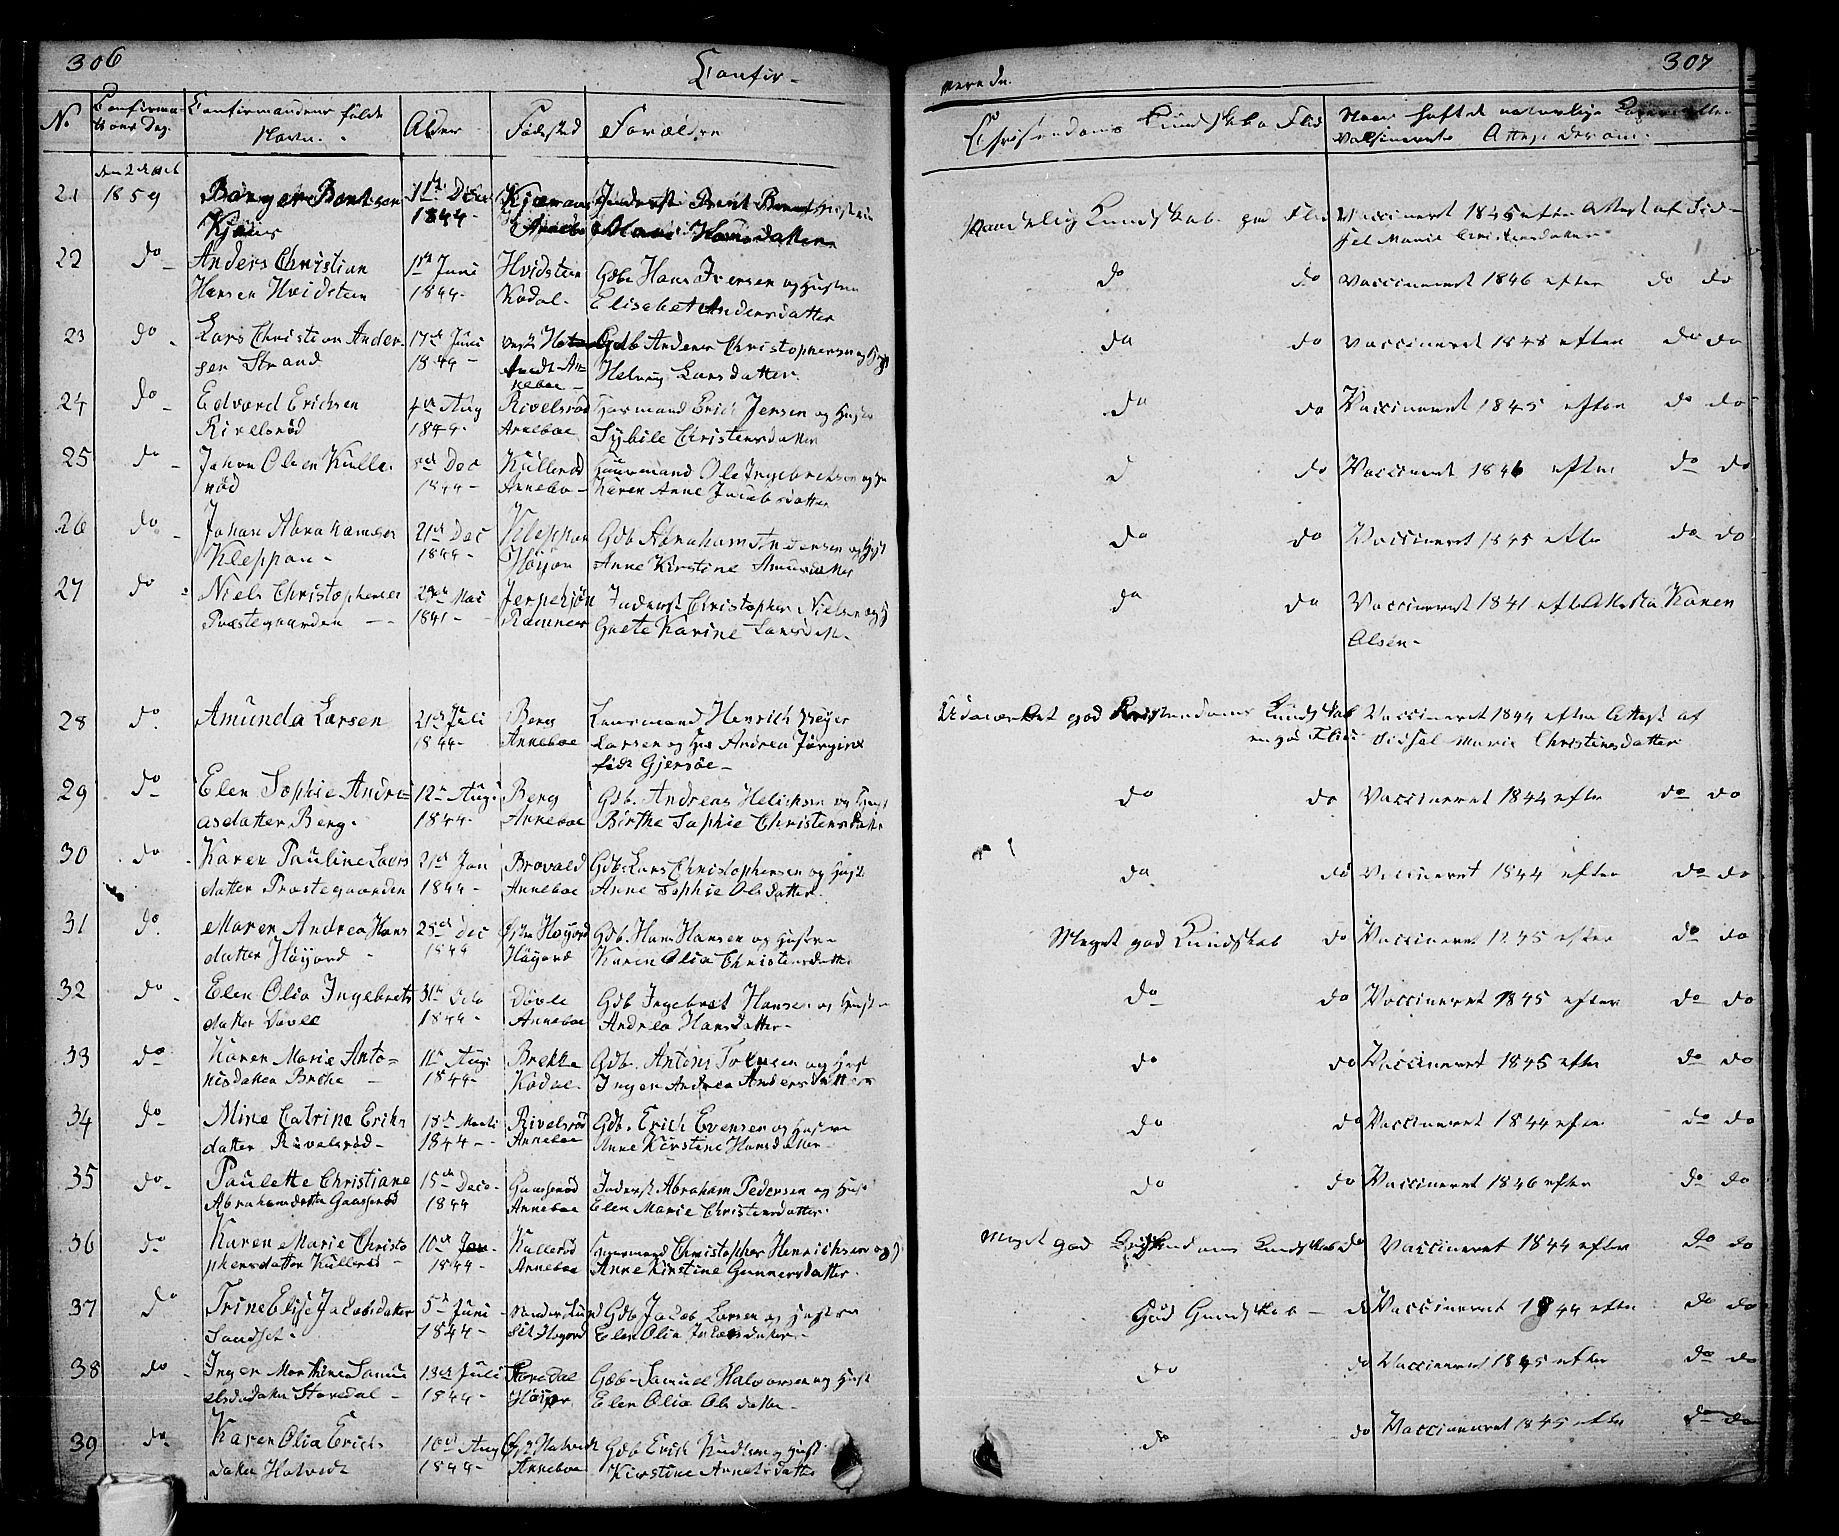 306
Confir-
No
Confirma-
tions Dag.
Confirmandens fulde
Navn.
Alder
Fødested
Forældre
21
den 2 Octob
1859
Børger Bentsen
Kjæus
Dec
1844-
22
do -
Anders Christian
Hansen Hvidsteen
Juni
1844-
Hvidsteen
Kodal-
Gdb. Hans Iversen og Hustru
Elisabet Andersdatter
23
do -
Lars Christian Ander-
sen Strand
17de Juni
1844-
Gdb Anders Christophersen og H
Helvig Larsdatter
24
do -
Edvard Erichsen
Rivelsrød
Aug
1844-
Rivelsrød
Anneboe
Huusmand Erich Jensen og Hustru
Sybile Christensdatter
25
do -
Johan Olsen Kulle-
rød
Dec
1844-
Kullerød
Annebo-
Huusmand Ole Ingebretsen og Hu
Karen Anne Jacobsdatter
26
do -
Johan Abrahamsen
Kleppan-
21de Dec
1844-
Kleppan
Høijor
Gdb Abraham Andersen og Hust
Anne Kirstine Amundatter
27
do -
Niels Christophersen
Præstegaarden -
Mai
1841-
Ramnes
Inderst Christopher Nielsen og H
Grete Karine Larsdatt-
28
do.
Amunda Larsen
21de Juli
1844-
Berg
Anneboe
Lensmand Henrich Beyer
Larsen og Hu Andrea Jørgine
født Gjersøe-
29
do -
Elen Sophie Andre-
asdatter Berg.
12te Aug
1844-
Berg
Anneboe
Gdb. Andreas Helichsen og Hust
Birthe Sophie Christensdatter
30
do -
Karen Pauline Lars
datter Præstegaarden
21de Jan
1844-
Brovald
Anneboe
Gdb Lars Christophersen og Hust
Anne Sophie Olsdatter
31
do.
Maren Andrea Hans
datter Høyord -
25de Dec
1844
Østre Høyord
Høyord
Gdb. Hans Hansen og Hustru
Karen Olia Christensdatter
32
do -
Elen Olia Ingebrets
datter Døvle
31te Octo
1844-
Døvle
Anneboe
Gdb Ingebret Hansen og Hustru
Andrea Hansdatter-
33
do
Karen Marie Anto-
nisdatter Brekke -
11te Aug
1844-
Brekke
Kodal-
Gdb. Antons og Hust
Inger Andrea Andersdatter
34
do -
Mine Catrine Eriks
datter Rivelsrød-
18de Marts
1844-
Rivelsrød
Anneboe
Gdb. Erich Evensen og Hustru
Anne Kirstine Hansdatter-
35
do -
Paulette Christiane
Abrahamdatter Gaaserød
15de Dece-
1844
Gaaserød
Anneboe
Inderst Abraham Pedersen og Hust
Elen Marie Christensdatter
36
do
Karen Marie Christo
phersdatter Kullerød -
10de Jan-
1844-
Kullerød
Anneboe
Huusmand Christopher Henrichsen og H
Anne Kirstine Gunnersdatter
37
do
Trine Elise Jacobsdatter
Sandset-
5te Juni
1844-
Gdb Jacob Larsen og Hustru
Elen Olia Jakobsdatter-
38
do -
Inger Marthine Samu
elsdatter Storedal-
13de Juli
1844-
Storedal
Gdb- Samuel Halvorsen og Hust
Elen Olia Olsdatter-
39
do -
Karen Olia Erichs
datter Hotvedt
10de Aug
1844-
Øst Hotvedt
Anneboe
Gdb Erich Knudsen og Hust
Kirstine Annelsdatter
307
merede.
Christendoms Kundskab og Flid
Naar haft de naturlige Kopper eller
Vaccinerede Attest derom.
Maadelig Kundskab god Flid
Vaccineret 1845 efter Attest af Sid-
sel Marie Christensdatter
do do Vaccineret 1846 efter do do
do do Vaccineret 1845 efter do do
do do Vaccineret 1845 efter do do
do Vaccineret 1846 efter do do
do do Vaccineret 1845 efter do do
do do Vaccineret 1841 efter Attest Karen
Olsen-
Udmærket god Kristendoms Kundskab
og god Flid
Vaccineret 1844 efter Attest af
Sidsel Marie Christensdatter
do do Vaccineret 1844 efter do do
do do Vaccineret 1844 efter do do
Meget god Kundskab do Vaccineret 1845 efter do do
do do Vaccineret 1845 efter do do
do do Vaccineret 1845 efter do do
do do Vaccineret 1844 efter do do
do do Vaccineret 1846 efter do do
Meget god Cristendoms Kundskab do Vaccineret 1844 efter do do
God Kundskab - do Vaccineret 1844 efter do do
do do Vaccineret 1845 efter do do
do do Vaccineret 1845 efter do do